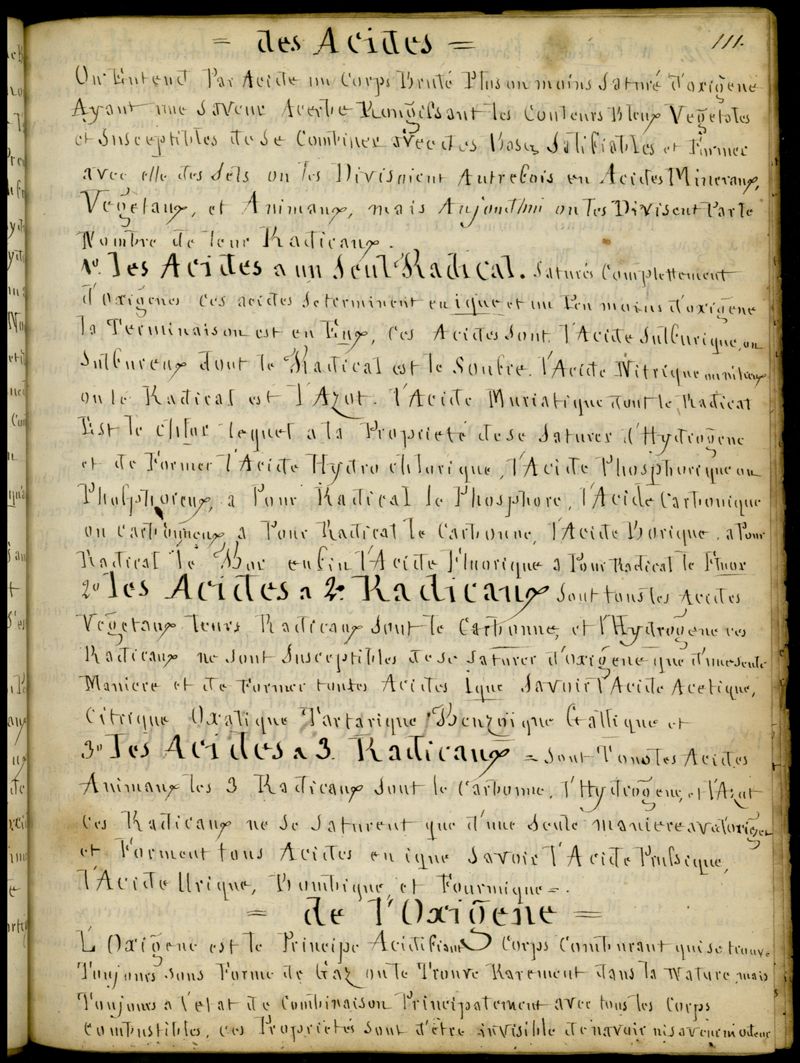 = des Acides =
111.
On Entend Par Acide un Corps Brulé Plus ou moins Saturé d'oxigene
Ayant une Saveur Acerbe Rougissant les Couleurs Bleux Vegetales
et Susceptibles de se Combiner avec des Bases Salifiables et Former
avec elle des Sels on les Divisoient Autrefois en Acides Mineraux,
Vegetaux, et Animaux, mais Aujourd'hui on les Divisent Par le
Nombre de leur Radicaux.
1o. les Acides a un Seul Radical. Saturés Complettement
d'oxigenes ces acides se terminent en ique et un Peu moins d'oxigene
la Terminaison est en Eux, Ces Acides sont l'Acide Sulfurique, ou
Sulfureux dont le Radical est le Soufre. l'Acide Nitrique ou nitreux
ou le Radical est l'Azot. l'Acide Muriatique dont le Radical
Est le Chlor lequel a la Propriété de se Saturer d'Hydrogene
et de Former l'Acide Hydro Chlorique, l'Acide Phosphorique ou
Phosphoreux, a Pour Radical le Phosphore, l'Acide Carbonique
ou Carboneux a Pour Radical le Carbonne, l'Acide Borique, a Pour
Radical le Bor enfin l'Acide Fluorique a Pour Radical le Fluor
2o les Acides a 2. Radicaux Sont tous les Acides
Vegetaux leurs Radicaux Sont le Carbonne, et l'Hydrogene ces
Radicaux ne sont Susceptibles de se Saturer d'oxigene que d'une seule
Maniere et de Former toutes Acides Ique Savoir l'Acide Acetique,
Citrique Oxalique Tartarique Benzoique Gallique et
3o les Acides a 3. Radicaux = Sont Tous les Acides
Animaux les 3 Radicaux Sont le Carbonne, l'Hydrogene, et l'Azot
Ces Radicaux ne Se Saturent que d'une Seule maniere avec l'oxigen
et Forment tous Acides en ique Savoir l'Acide Prussique,
l'Acide Urique, Bombique et Fourmique =.
= de l'Oxigene =
L'Oxigene est le Principe Acidifiant Corps Comburant qui se trouve
Toujours sous Forme de Gaz on le Trouve Rarement dans la Nature, mais
Toujours a l'etat de Combinaison Principalement avec tous les Corps
Combustibles, ces Proprietés Sont d'être invisible de n'avoir ni saveur ni odeur